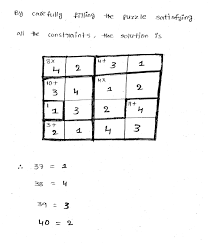 By carefully filling the puzzle satisfying
all the constraints, the solution is
8x 4 2 4+ 3 1
10+ 3 4x 1 2
1 3 2 4
3+ 2 1 4 3
∴ 37 = 1
38 = 4
39 = 3
40 = 2